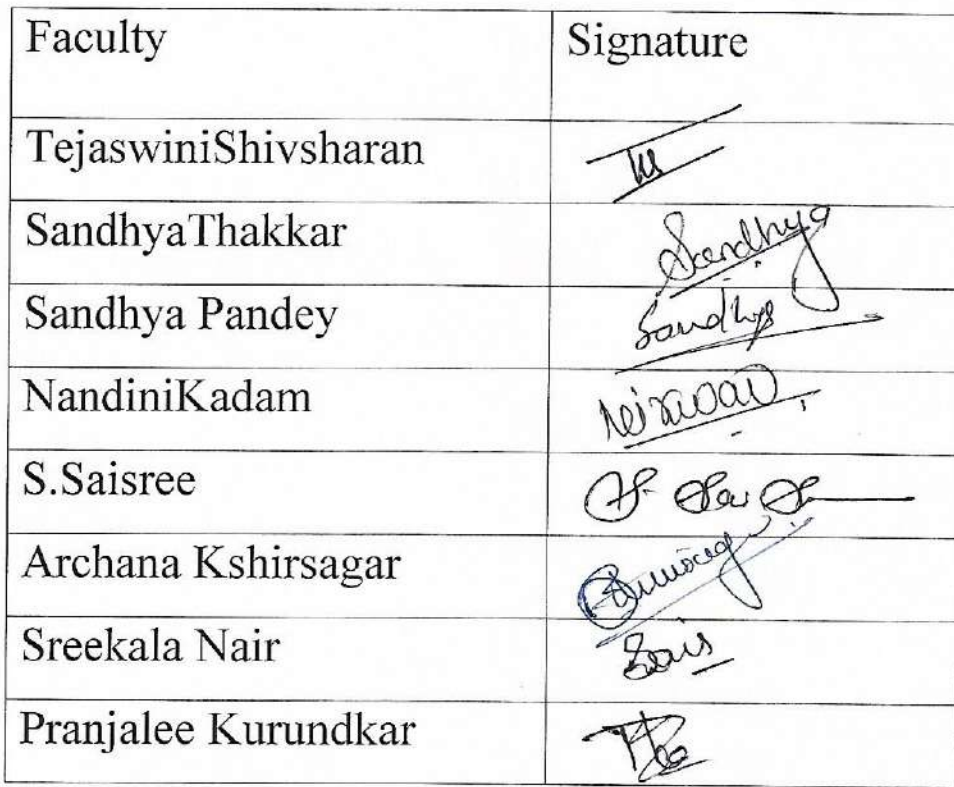 Faculty Signature
TejaswiniShivsharan
SandhyaThakkar Sandhya
Sandhya Pandey Sandhya
NandiniKadam
S.Saisree
Archana Kshirsagar
Sreekala Nair
Pranjalee Kurundkar